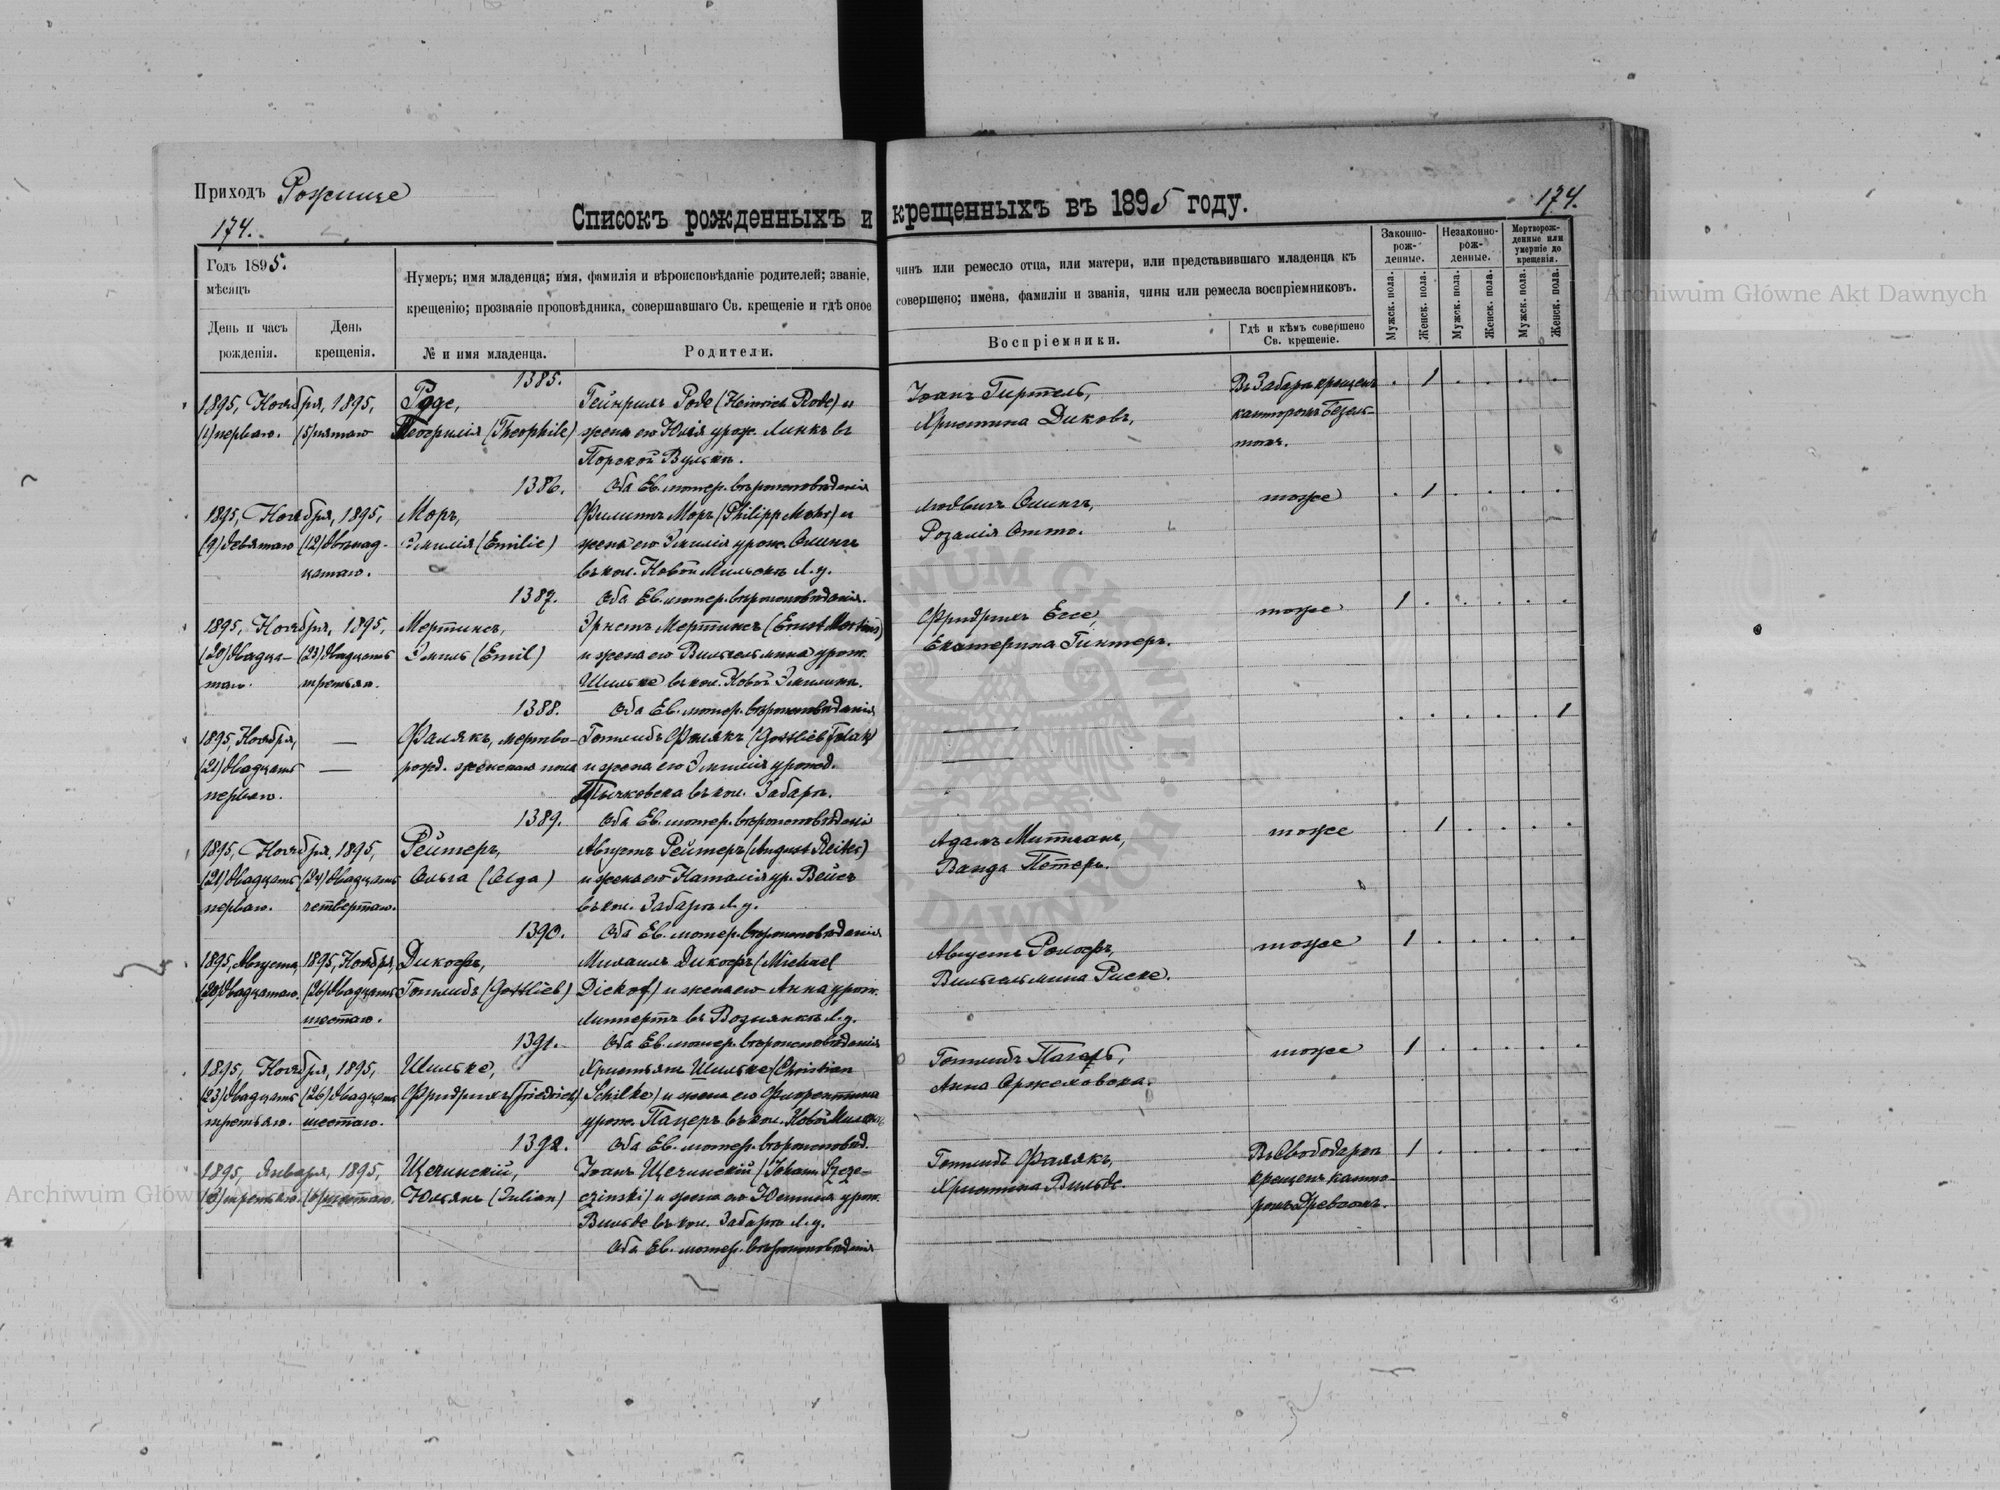 Приходъ Рожище
174.
174.
Списокъ рожденныхъ и крещенныхъ въ 1895 году.
Годъ 1895.
мѣсяцъ
День и часъ рожденія.
День крещенія.
Нумеръ; имя младенца; имя, фамилія и вѣроисповѣданіе родителей; званіе, чинъ или ремесло отца, или матери, или представившаго младенца къ
крещенію; прозваніе проповѣдника, совершавшаго Св. крещеніе и гдѣ оное совершено; имена, фамиліи и званія, чины или ремесла воспріемниковъ.
№ и имя младенца.
Родители.
Воспріемники.
Гдѣ и кѣмъ совершено Св. крещеніе.
Законно-рож-денные.
Незаконно-рож-денные.
Мертворож-денные или умершіе до крещенія.
Мужск. пола.
Женск. пола.
Мужск. пола.
Женск. пола.
Мужск. пола.
Женск. пола.
1385.
1895, Ноября, 1895, Роде, Гейнрихъ Роде (Heinrich Rode) и Іоганъ Гиртель, Въ Забарѣ крещенъ 1
(1) перваго. (5) пятаго Теофилія (Theophile) жена его Юлія урож. Линкъ въ Христина Диковъ, канторомъ
Порской Вулькѣ.
1386. Оба Ев. лютер. вѣроисповѣданія
1895, Ноября, 1895, Моръ, Филиппъ Моръ (Philipp Mohr) и Людвигъ тоже 1
(9) девятаго (12) двѣнад- Эмилія (Emilie) жена его Эмилія урож. Розалія Отто.
цатаго. въ кол. Новой Мильскѣ Л. у.
1387. Оба Ев. лютер. вѣроисповѣданія.
1895, Ноября, 1895, Мертинсъ, Эрнстъ Мертинсъ (Ernst Mertins) Фридрихъ Ессе, тоже 1
(20) двадца- (23) двадцать Эмиль (Emil) и жена его Вильгельмина урож. Екатерина Гинтеръ.
таго. третьяго. Шильке въ кол. Новой
1388. Оба Ев. лютер. вѣроисповѣданія
1895, Ноября, — Фалякъ, мертво- Готлибъ Фалякъ (Gottlieb Falak) — 1
(21) двадцать — рожд. женскаго пола и жена его Эмилія урожд. —
перваго. Тычковска въ кол. Забарѣ.
1389. Оба Ев. лютер. вѣроисповѣданія
1895, Ноября, 1895, Рейтеръ, Августъ Рейтеръ (August Reiter) Адамъ тоже 1
(21) двадцать (24) двадцать Ольга (Olga) и жена его Наталія ур. Вейсъ Ванда Петеръ.
перваго. четвертаго. въ кол. Забарѣ Л. у.
1390. Оба Ев. лютер. вѣроисповѣданія
1895, Августа 1895, Ноября, Дикофъ, Михаилъ Дикофъ (Michael Августъ Рольофъ, тоже 1
(20) двадцатаго. (26) двадцать Готлибъ (Gottlieb) Dickof) и жена его Анна урож. Вильгельмина Риске.
шестаго. Липпертъ въ Вознянкѣ Л. у.
1391. Оба Ев. лютер. вѣроисповѣданія
1895, Ноября, 1895, Шильке, Христьянъ Шильке (Christian Готлибъ тоже 1
(23) двадцать (26) двадцать Фридрихъ (Friedrich) Schilke) и жена его Флорентина Анна Оржеховска.
третьяго. шестаго. урож. Пацеръ въ кол. Новой
1392. Оба Ев. лютер. вѣроисповѣд.
1895, Января, 1895, Щечинскій, Іоганъ Щечинскій (Johann Szcze- Готлибъ Фалякъ, Въ Свободаркѣ 1
(3) третьяго. (6) шестаго. Юльянъ (Julian) czinski) и жена его Юстина урож. Христина Вильде. крещенъ канто-
Вильде въ кол. Забарѣ Л. у. ромъ Древсомъ.
Оба Ев. лютер. вѣроисповѣданія
Archiwum Główne Akt Dawnych